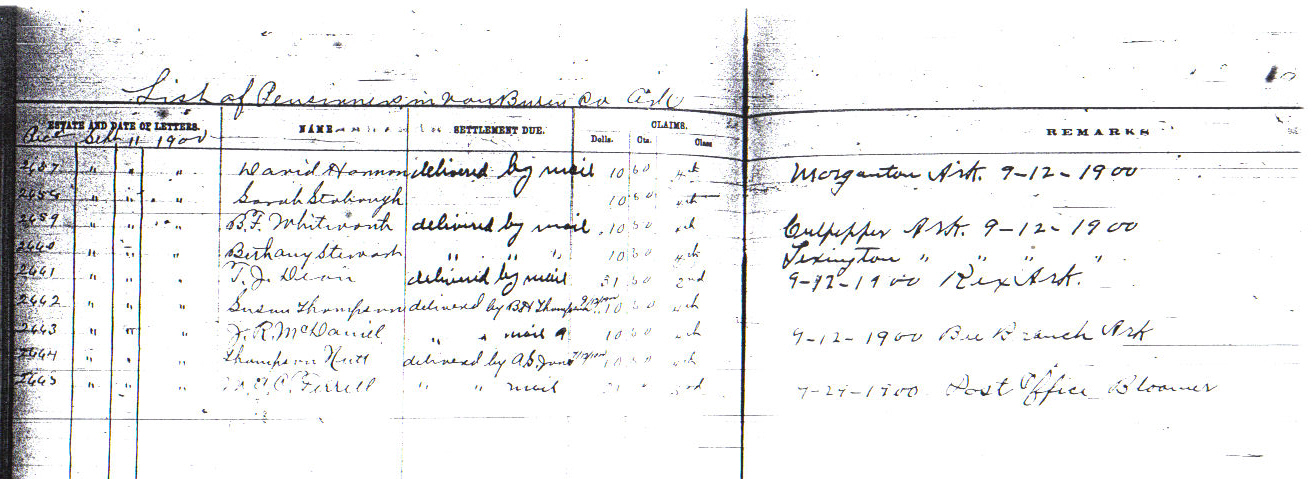 List of Pensioners in Van Buren Co Ark
ESTATE AND DATE OF LETTERS. NAME SETTLEMENT DUE. CLAIMS. REMARKS
Sept 11 1900 Dolls. Cts. Class
2437 " " " David Hannon delivered by mail 10 50 4th Morganton Ark. 9-12-1900
" " " Sarah 10 50 4th
" " " B.F. Whitworth delivered by mail 10 50 4th Culpepper Ark. 9-12-1900
2440 " " " Bethany Stewart " " 10 50 4th Lexington " " "
2441 " " " T. J. delivered by mail 31 50 2nd 9-12-1900 Rex Ark.
2442 " " " Susan Thompson delivered by B H Thompson 10 50 4th
2443 " " " J. R. McDaniel " " mail 10 50 4th 9-12-1900 Bee Branch Ark
2444 " " " Thompson Nutt delivered by A.S. Jones 10 50 4th
2445 " " " C. Ferrell " " mail 21 " 3rd Post Office Bloomer